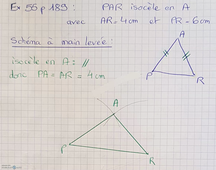 Ex 55 p 189 : PAR isocèle en A
avec AR = 4cm et PR = 6cm
Schéma à main levée
A
isocèle en A : //
donc PA = AR = 4cm
P
R
A
P
R